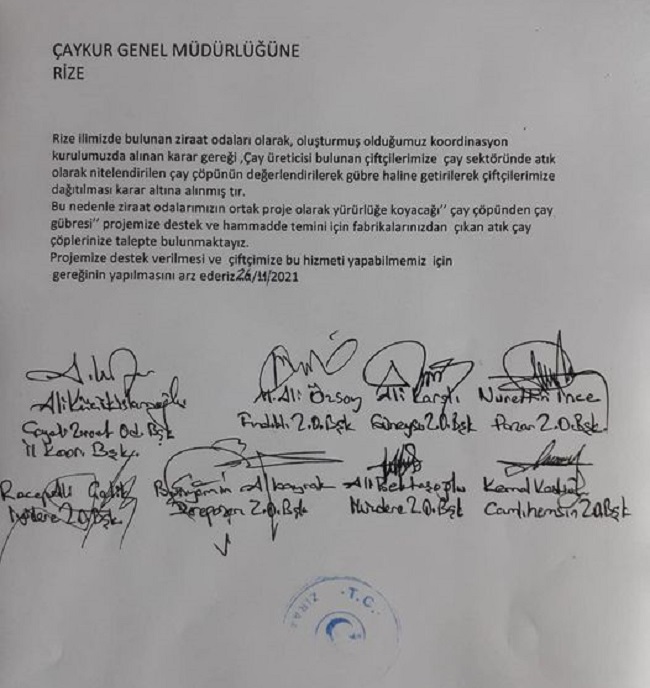 ÇAYKUR GENEL MÜDÜRLÜĞÜNE
RİZE
Rize ilimizde bulunan ziraat odaları olarak, oluşturmuş olduğumuz koordinasyon
kurulumuzda alınan karar gereği ,Çay üreticisi bulunan çiftçilerimize çay sektöründe atık
olarak nitelendirilen çay çöpünün değerlendirilerek gübre haline getirilerek çiftçilerimize
dağıtılması karar altına alınmış tır.
Bu nedenle ziraat odalarımızın ortak proje olarak yürürlüğe koyacağı" çay çöpünden çay
gübresi" projemize destek ve hammadde temini için fabrikalarınızdan çıkan atık çay
çöplerinize talepte bulunmaktayız.
Projemize destek verilmesi ve çiftçimize bu hizmeti yapabilmemiz için
gereğinin yapılmasını arz ederiz 26/11/2021
Ali M. Ali Özsoy Ali Karglı Nurettin İnce
Ziraat Od. Bşk Fındıklı Z.O.Bşk Güneysu Z.O.Bşk Pazar Z.O.Bşk.
İl Koor. Bşk.
Recep Ali Çelik Bünyamin Albayrak Ali Bektaşoğlu Kemal
İyidere Z.O.Bşk. Derepazarı Z.O.Bşk Z.O.Bşk Camlıhemşin Z.O.Bşk
ZİRAA T.C.